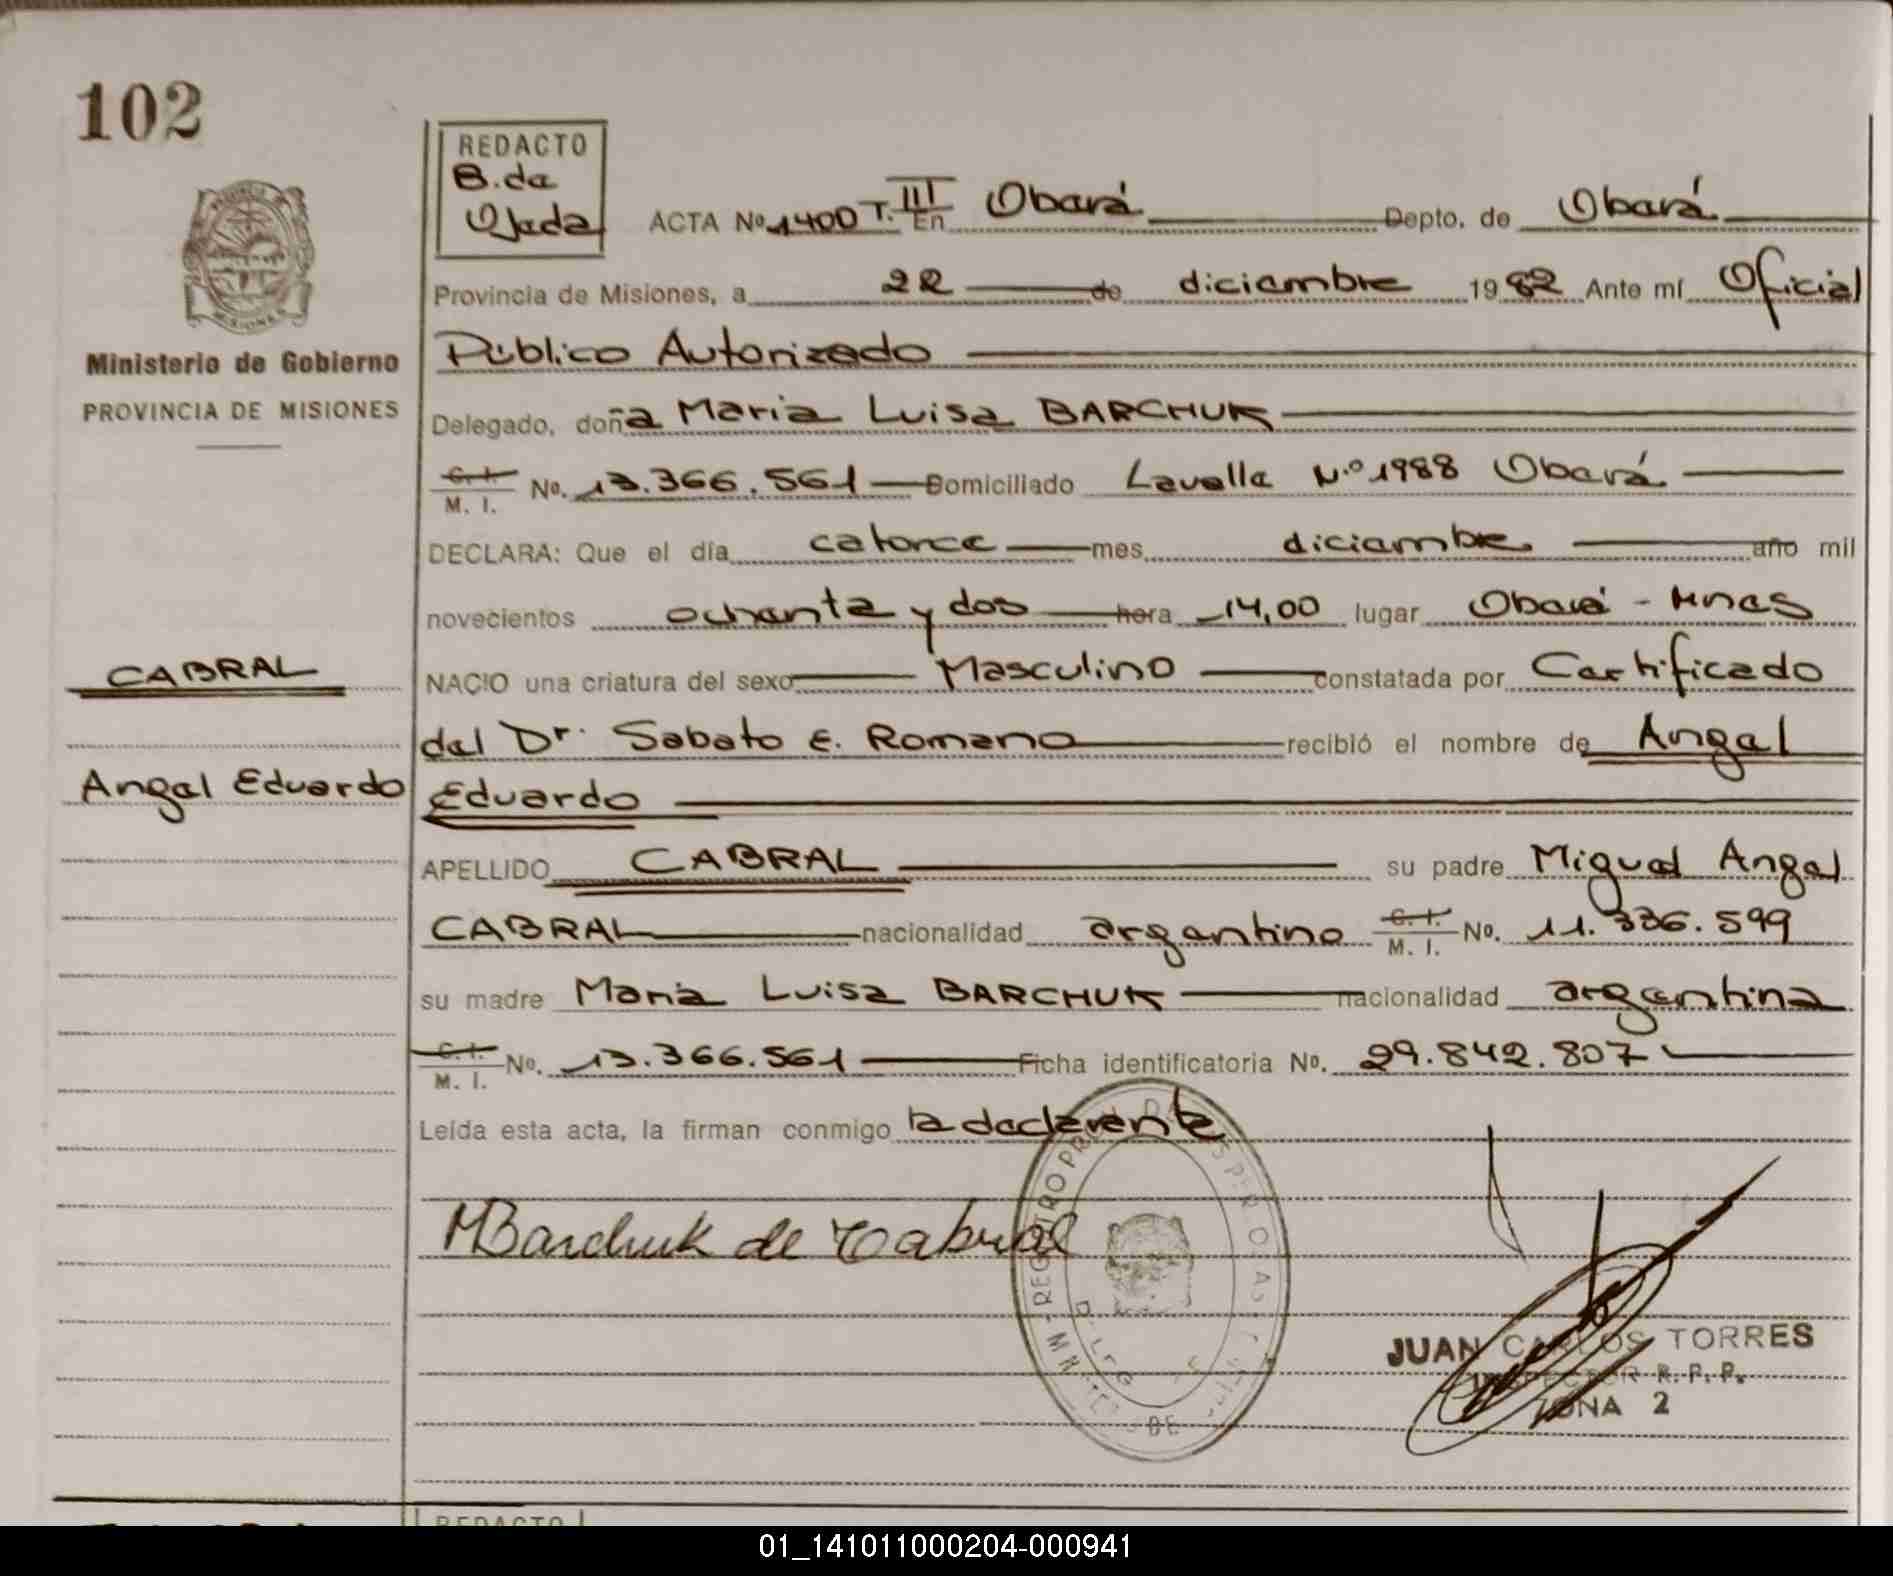 102
REDACTO
B. de
Ojeda
ACTA Nº 1400 T. III En Oberá Depto. de Oberá
Provincia de Misiones, a 22 de diciembre 1982 Ante mí Oficial
Ministerio de Gobierno
PROVINCIA DE MISIONES
Público Autorizado
Delegado, doña Maria Luisa BARCHUK
C. I. / M. I. No. 13.366.561 Domiciliado Lavalle Nº 1988 Oberá
DECLARA: Que el día catorce mes diciembre año mil
novecientos ochenta y dos hora 14,00 lugar Oberá - Mnes
CABRAL
NACIO una criatura del sexo Masculino constatada por Certificado
del Dr. Sabato E. Romano recibió el nombre de Angel
Angel Eduardo
Eduardo
APELLIDO CABRAL su padre Miguel Angel
CABRAL nacionalidad argentino C. I. / M. I. No. 11.336.599
su madre Maria Luisa BARCHUK nacionalidad argentina
C. I. / M. I. No. 13.366.561 Ficha identificatoria No. 29.842.807
Leída esta acta, la firman conmigo la declarante
MBarchuk de Cabral
JUAN CARLOS TORRES
INSPECTOR R. P. P.
ZONA 2
REDACTO
01_141011000204-000941